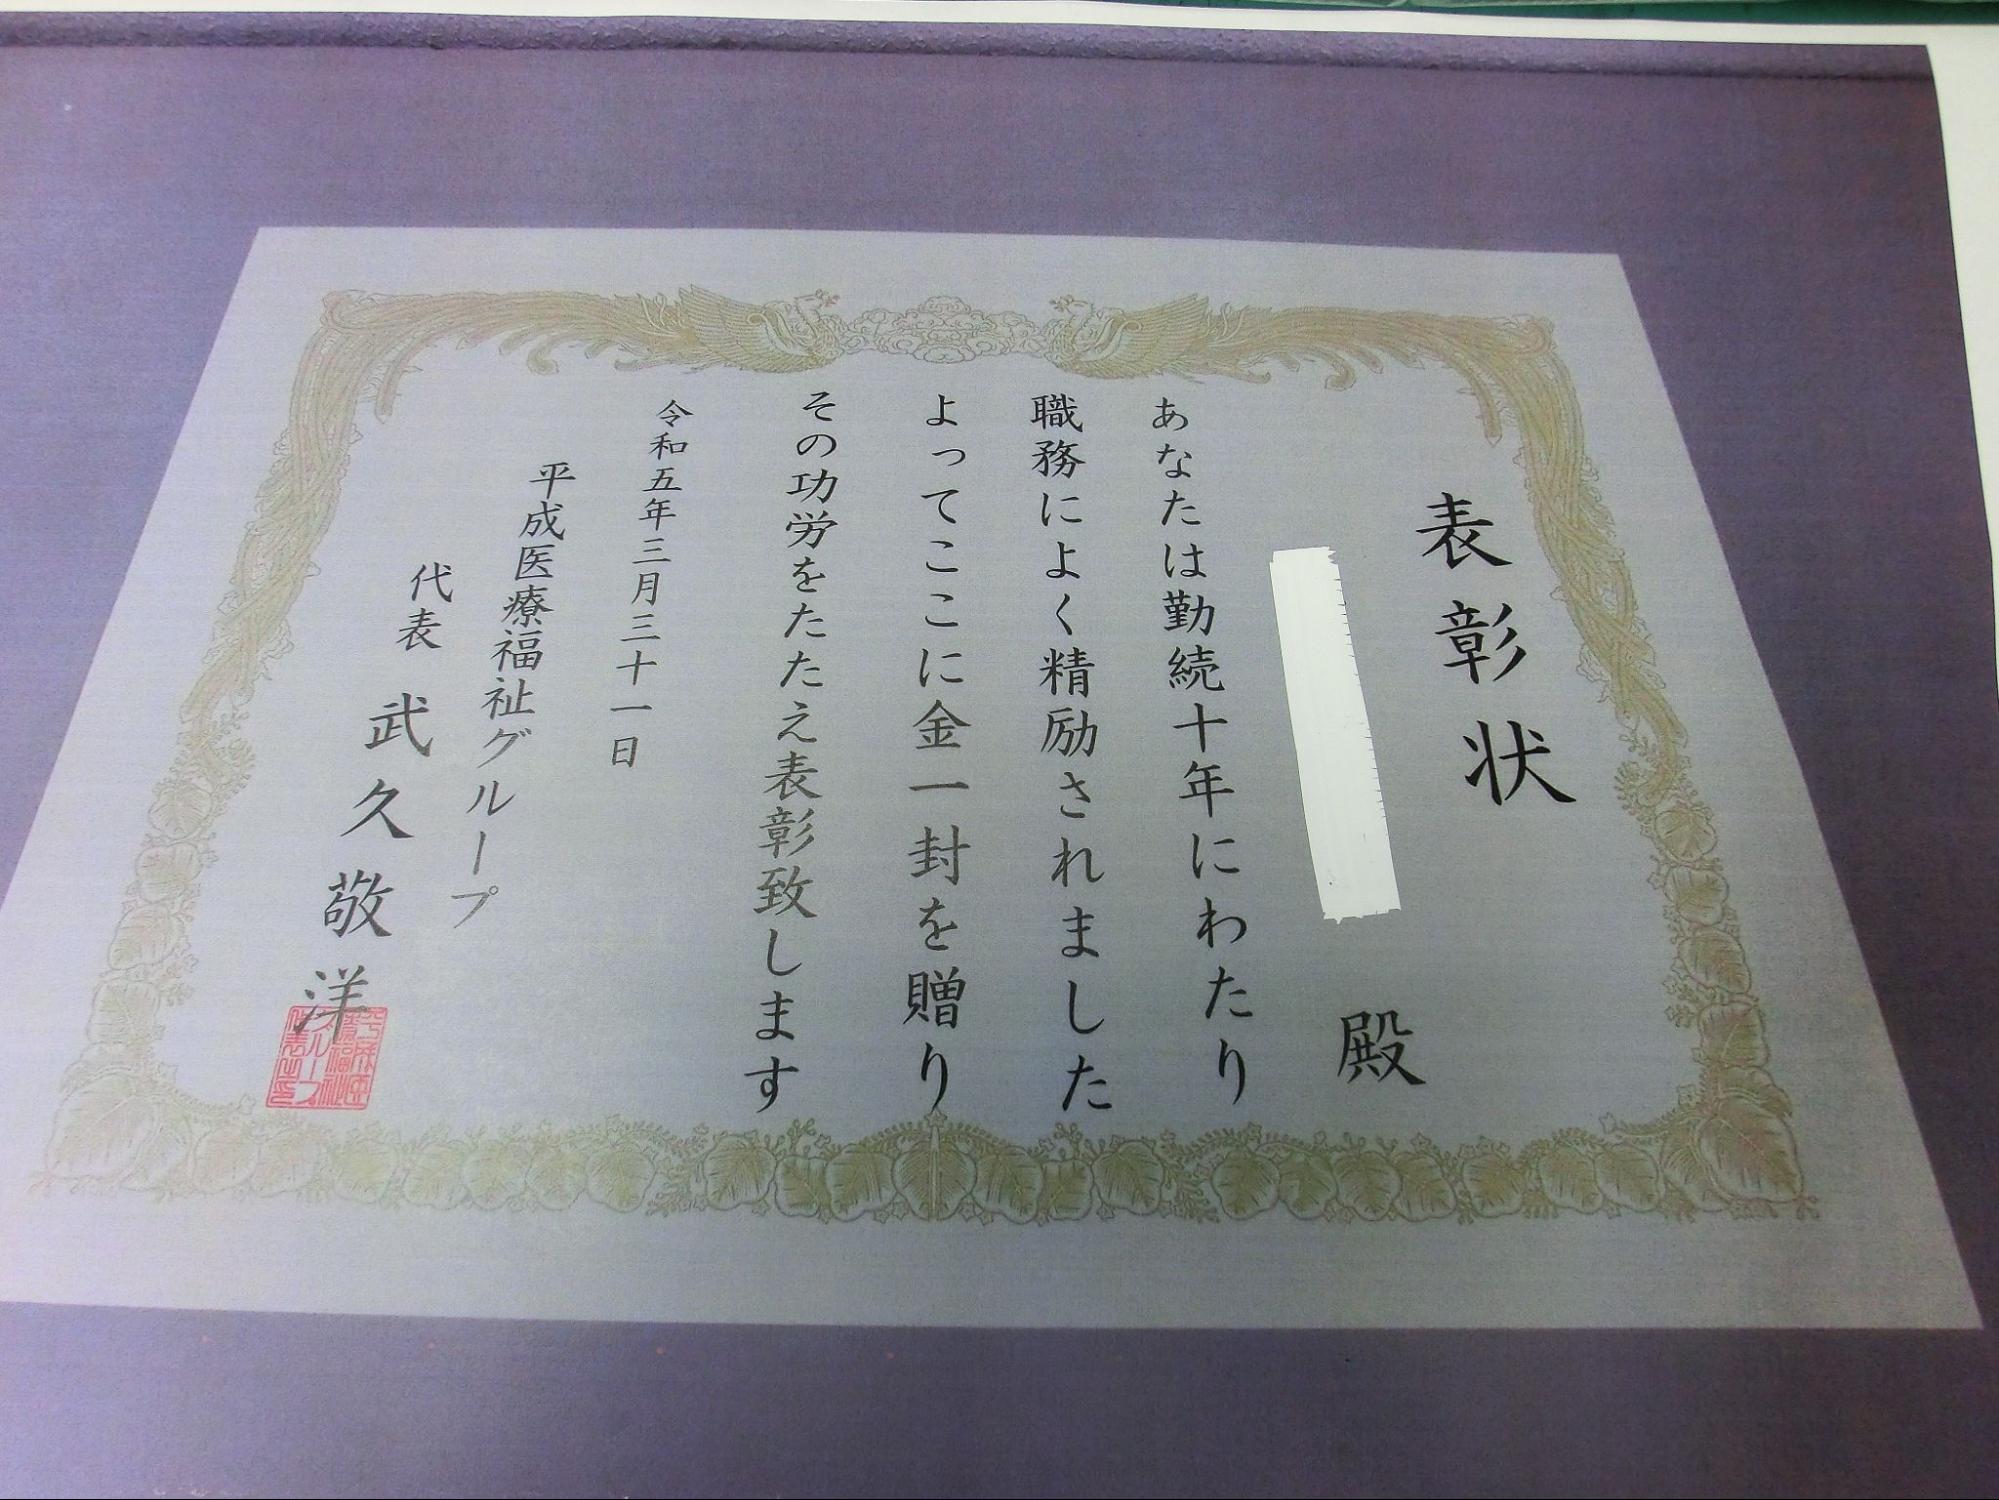 表彰状
殿
あなたは勤続十年にわたり
職務によく精励されました
よってここに金一封を贈り
その功労をたたえ表彰致します
令和五年三月三十一日
平成医療福祉グループ
代表 武久敬洋